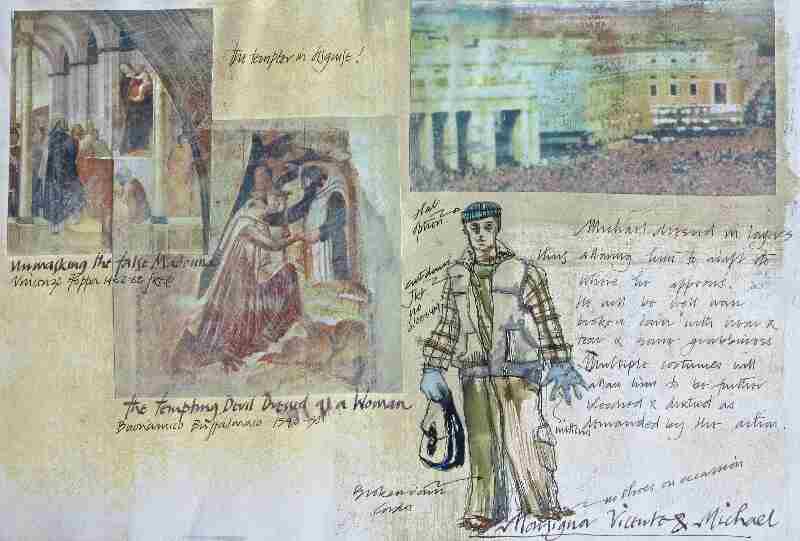 the tempter in disguise!
Unmasking the false Madonna
Vincenzo Foppa
The Tempting Devil Dressed as a Woman
Buonamico Buffalmaco
Hat
Michael dressed in layers
thus allowing him to adapt to
where he appears.
He will be well worn
broken down with wear &
tear & some grubbiness
Multiple costumes will
allow him to be further
bleached & dirtied as
demanded by the action.
mittens
Broken down
cords
no shoes on occasion
Monsignor Vicento & Michael